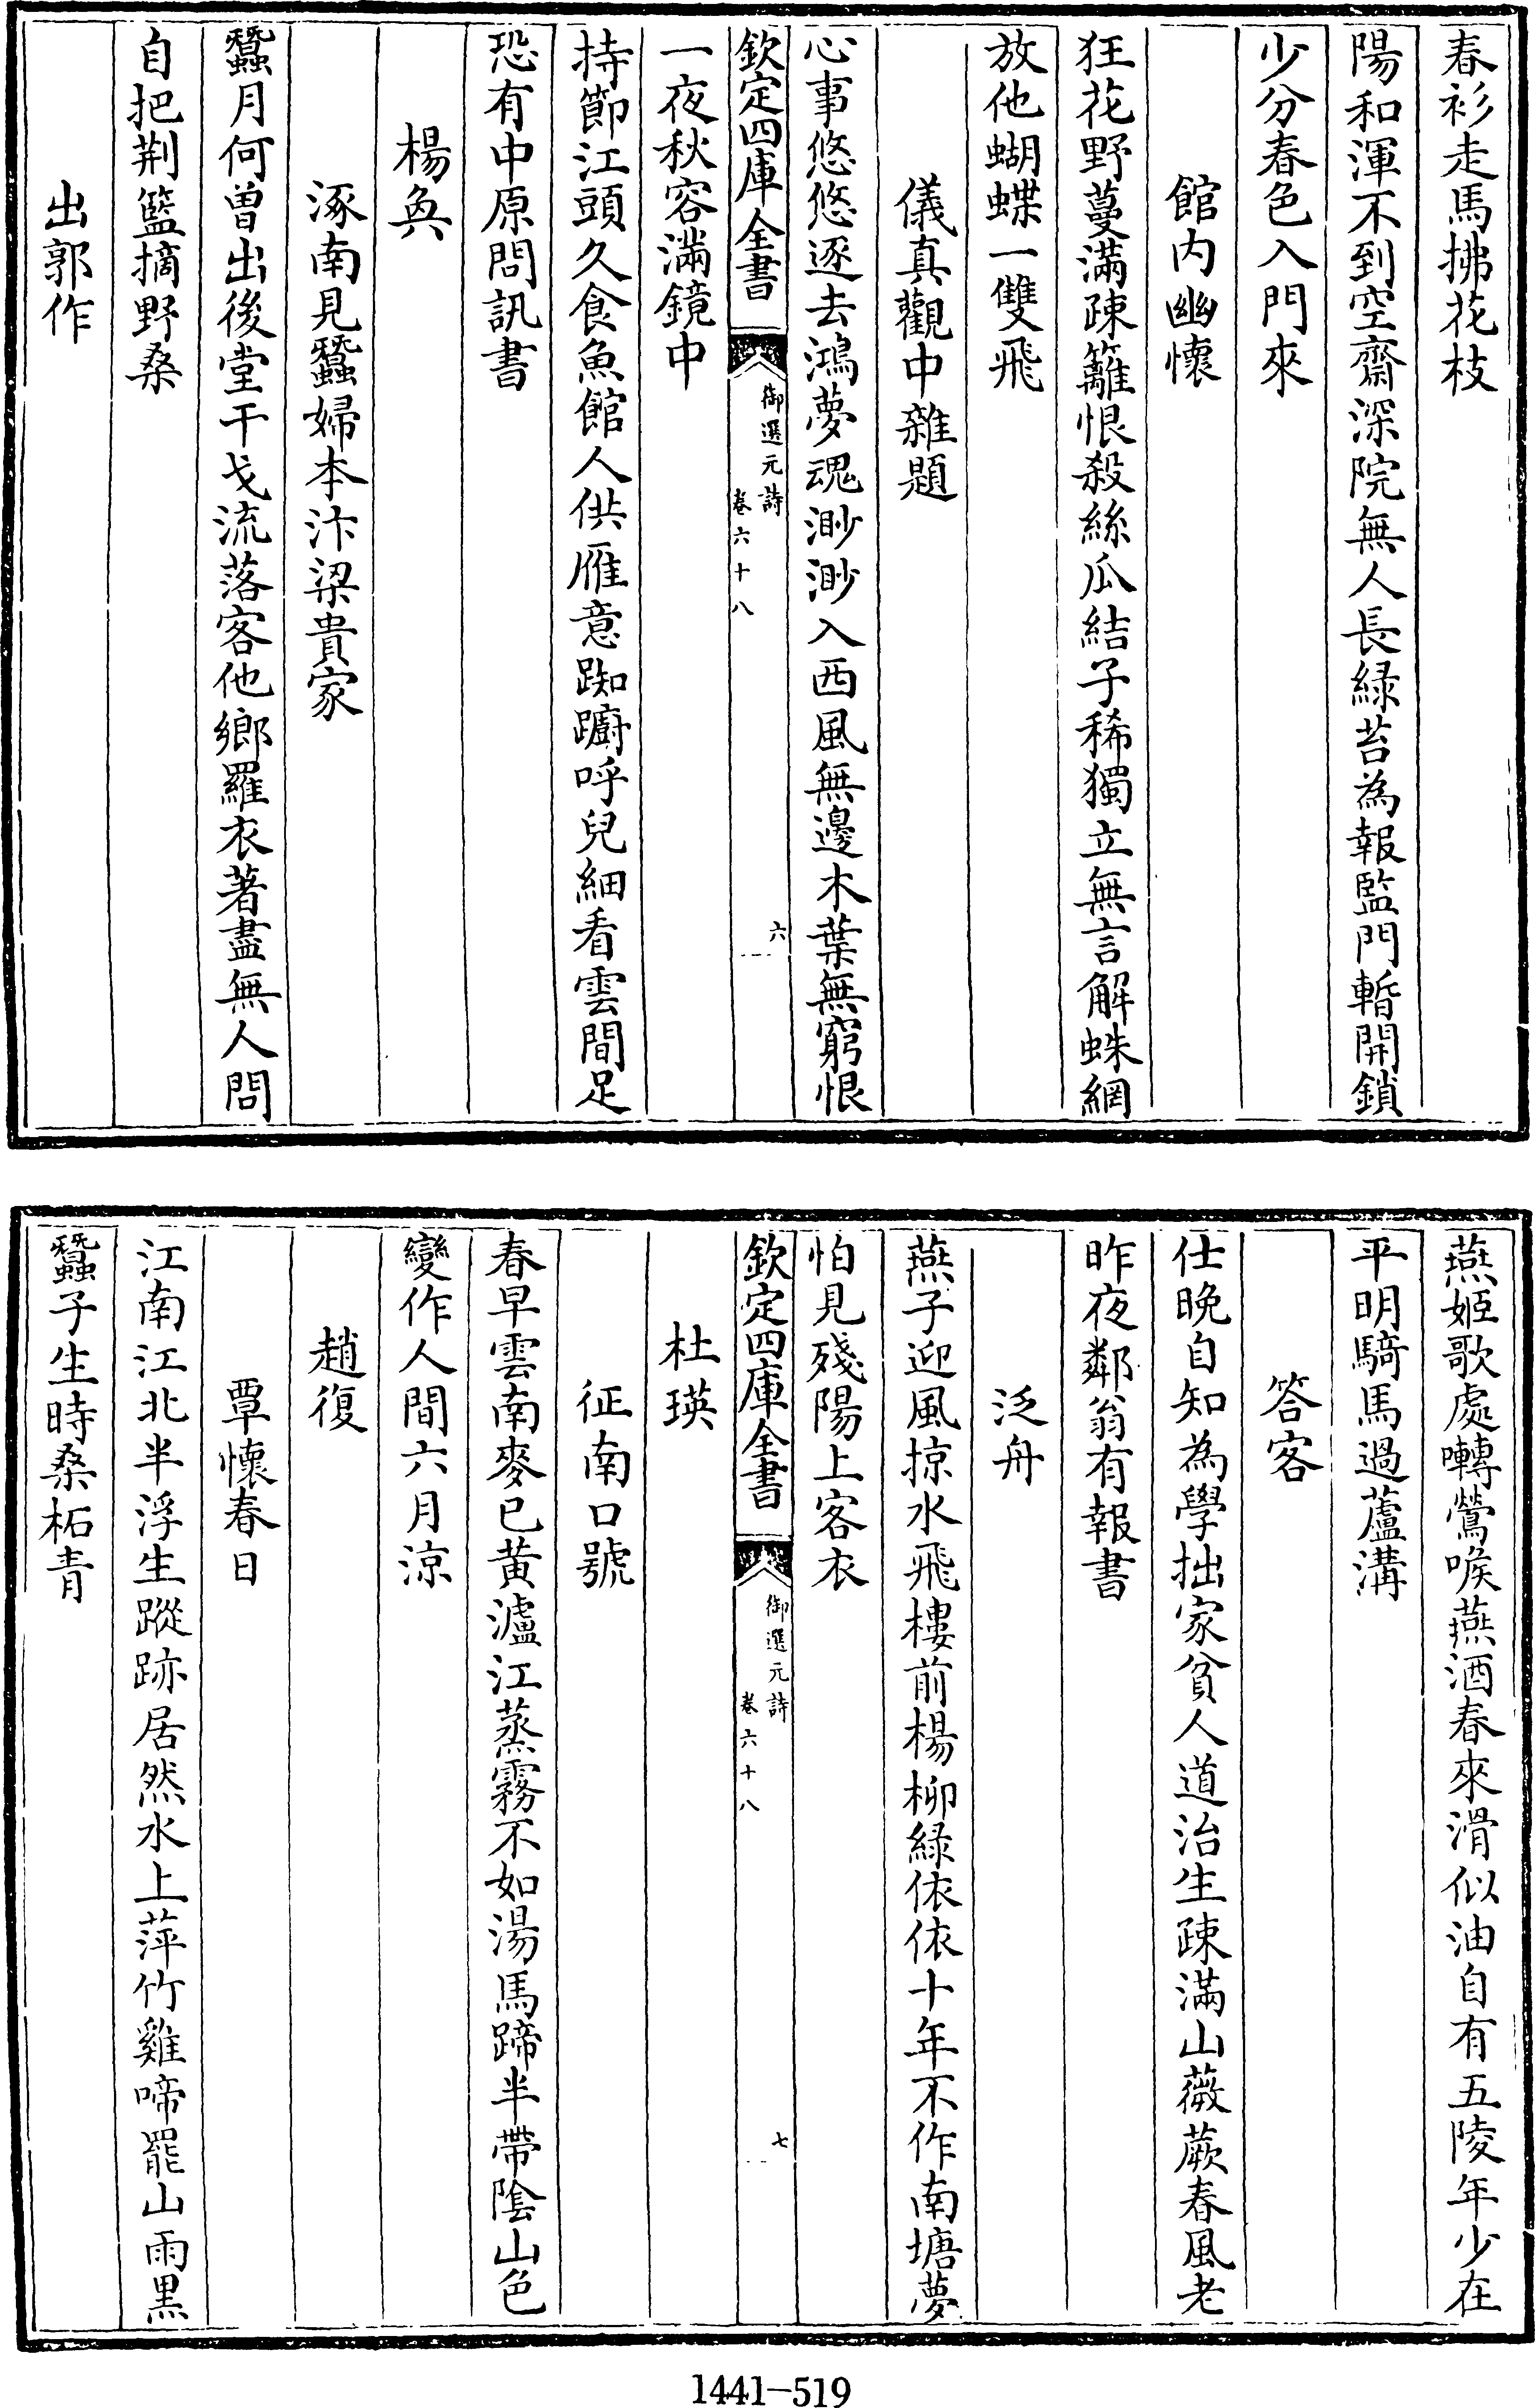 春衫走馬拂花枝
陽和渾不到空齋深院無人長緑苔為報監門暫開鎖
少分春色入門來
館内幽懷
狂花野蔓滿疎籬恨殺絲瓜結子稀獨立無言解蛛網
放他蝴蝶一雙飛
儀真觀中雜題
心事悠悠逐去鴻夢魂渺渺入西風無邊木葉無窮恨
欽定四庫全書
御選元詩
卷六十八
六
一夜秋容滿鏡中
持節江頭久食魚館人供雁意踟躕呼兒細看雲間足
恐有中原問訊書
楊奐
涿南見蠶婦本汴梁貴家
蠶月何曾出後堂干戈流落客他鄉羅衣著盡無人問
自把荆籃摘野桑
出郭作
燕姬歌處囀鶯喉燕酒春來滑似油自有五陵年少在
平明騎馬過蘆溝
答客
仕晚自知為學拙家貧人道治生疎滿山薇蕨春風老
昨夜鄰翁有報書
泛舟
燕子迎風掠水飛樓前楊柳緑依依十年不作南塘夢
怕見殘陽上客衣
欽定四庫全書
御選元詩
卷六十八
七
杜瑛
征南口號
春早雲南麥已黄瀘江蒸霧不如湯馬蹄半帶隂山色
變作人間六月涼
趙復
覃懷春日
江南江北半浮生蹤跡居然水上萍竹雞啼罷山雨黒
蠶子生時桑柘青
1441—519